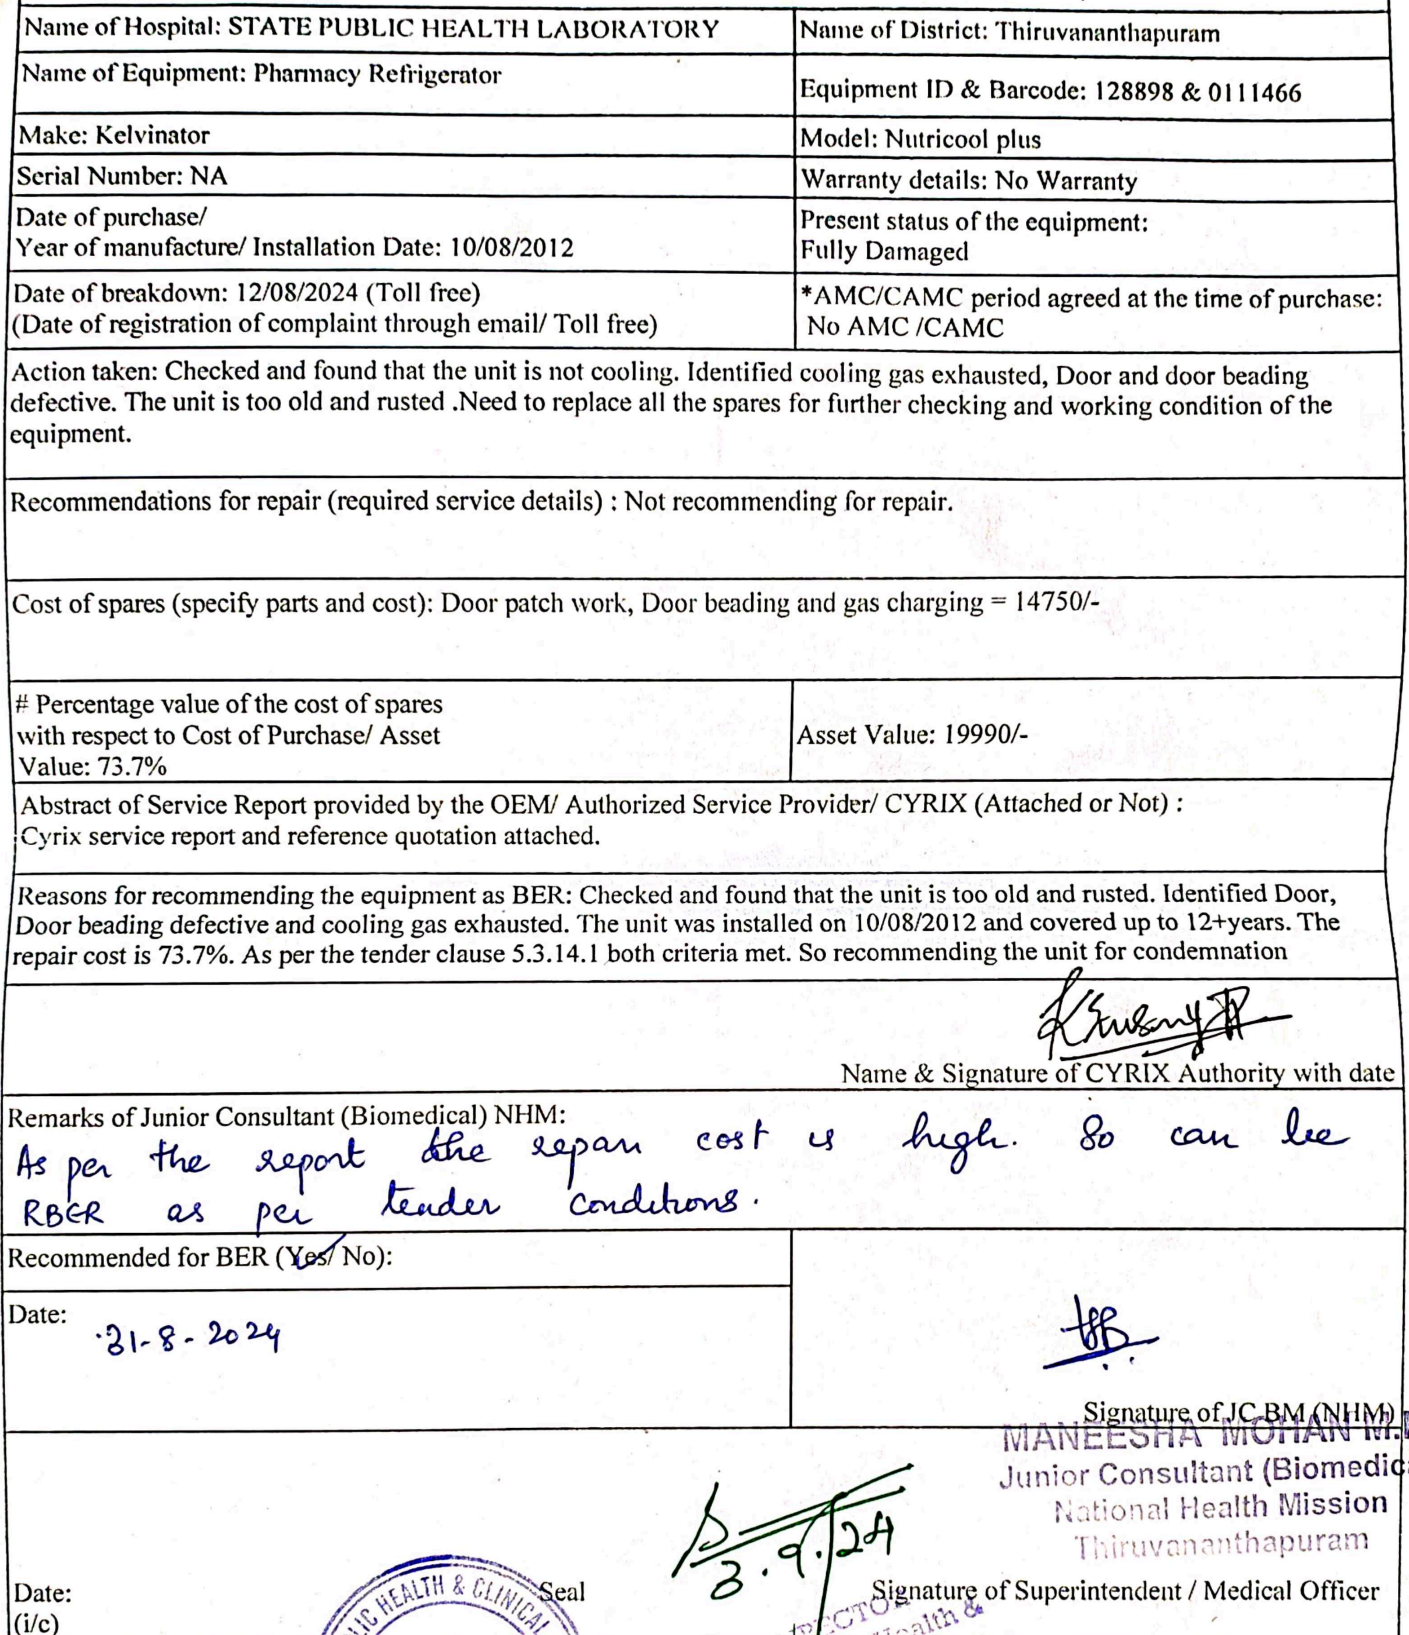 Name of Hospital: STATE PUBLIC HEALTH LABORATORY
Name of District: Thiruvananthapuram
Name of Equipment: Pharmacy Refrigerator
Equipment ID & Barcode: 128898 & 0111466
Make: Kelvinator
Model: Nutricool plus
Serial Number: NA
Warranty details: No Warranty
Date of purchase/
Year of manufacture/ Installation Date: 10/08/2012
Present status of the equipment:
Fully Damaged
Date of breakdown: 12/08/2024 (Toll free)
(Date of registration of complaint through email/ Toll free)
*AMC/CAMC period agreed at the time of purchase:
No AMC /CAMC
Action taken: Checked and found that the unit is not cooling. Identified cooling gas exhausted, Door and door beading
defective. The unit is too old and rusted .Need to replace all the spares for further checking and working condition of the
equipment.
Recommendations for repair (required service details) : Not recommending for repair.
Cost of spares (specify parts and cost): Door patch work, Door beading and gas charging = 14750/-
# Percentage value of the cost of spares
with respect to Cost of Purchase/ Asset
Value: 73.7%
Asset Value: 19990/-
Abstract of Service Report provided by the OEM/ Authorized Service Provider/ CYRIX (Attached or Not) :
Cyrix service report and reference quotation attached.
Reasons for recommending the equipment as BER: Checked and found that the unit is too old and rusted. Identified Door,
Door beading defective and cooling gas exhausted. The unit was installed on 10/08/2012 and covered up to 12+years. The
repair cost is 73.7%. As per the tender clause 5.3.14.1 both criteria met. So recommending the unit for condemnation
Name & Signature of CYRIX Authority with date
Remarks of Junior Consultant (Biomedical) NHM:
As per the report the repair cost is high. So can be
RBER as per tender conditions.
Recommended for BER (Yes/ No):
Date:
31-8-2024
Signature of JC BM (NHM)
MANEESHA MOHAN M.
Junior Consultant (Biomedic
National Health Mission
Thiruvananthapuram
3.9.24
Date:
Seal
Signature of Superintendent / Medical Officer
(i/c)
LIC HEALTH & CLINICAL
RECTOR
Health &